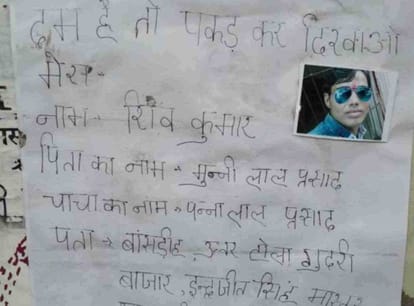 दम है तो पकड़ कर दिखाओ
मेरा-
नाम- शिव कुमार
पिता का नाम- मुन्नी लाल प्रसाद
चाचा का नाम- पन्ना लाल प्रसाद
पता - बांसडीह, उत्तर टोला गुदरी
बाजार, इन्द्रजीत सिंह